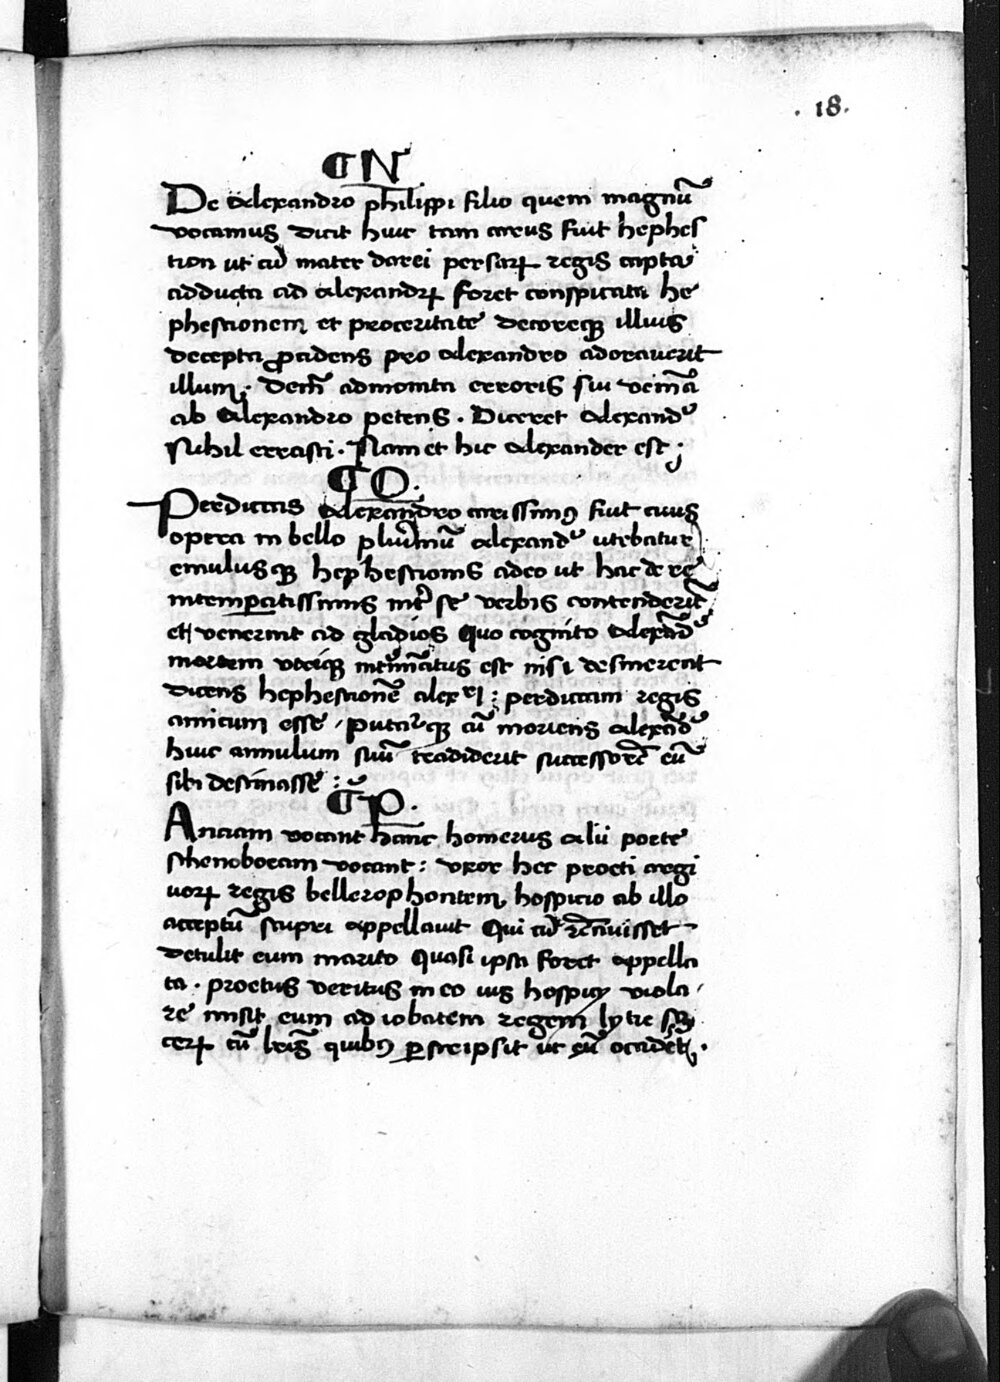 . 18.
¶ N
De Alexandro philippi filio quem magnū
vocamus dicit huic tam carus fuit hephes
tion ut cū mater darei persarꝝ regis capta
adducta ad alexandrꝝ foret conspicata he
phestionem et proceritate decoreqꝫ illius
decepta ꝓcidens pro alexandro adoraverit
illum. Dem̄ admonita erroris sui veniā
ab Alexandro petens. Diceret Alexandˀ
Nihil errasti. Nam et hic Alexander est;
¶ O.
Perdiccas Alexandro carissimꝰ fuit cuius
opera in bello plurimū alexandˀ utebatur
emulusqꝫ hephestionis adeo ut hac de re
intemperatissimis int̄ se verbis contenderīt
et venerint ad gladios Quo cognito Alexādˀ
mortem utriqꝫ est nisi desinerent
dicens hephestionē alexʳⁱ: perdiccam regis
amicum esse / putarˀqꝫ cū moriens alexādˀ
huic annulum suū tradiderit successorē eū
sibi destinasse :
¶ P.
Anciam vocant hanc homerus Alii porte
schenoboeam vocant: vxor hec proeti argi
uorꝝ regis bellerophontem hospicio ab illo
acceptū stupri appellavit Qui cū recusavisset
detulit eum marito Quasi ipsa foret appella
ta. proetus veritus in eo ius hospicii viola /
re misit eum ad iobatem regem lytie
cerꝝ cū quibꝰ ꝑscripsit ut eū occidēt.